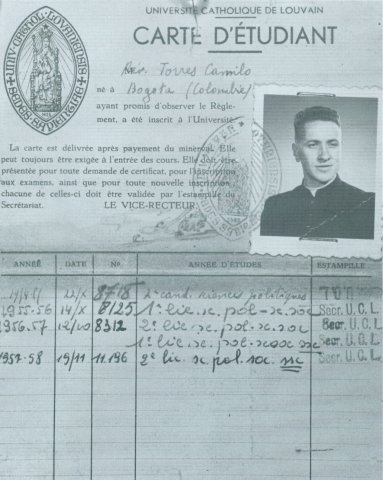 UNIV. CATHOL. LOVANIENSIS
SEDES SAPIENTIAE
UNIVERSITÉ CATHOLIQUE DE LOUVAIN
CARTE D'ÉTUDIANT
Rev. Torres Camilo
né à Bogota (Colombie)
ayant promis d'observer le Règle-
ment, a été inscrit à l'Université
La carte est délivrée après payement du minerval. Elle
peut toujours être exigée à l'entrée des cours. Elle doit être
présentée pour toute demande de certificat, pour l'inscription
aux examens, ainsi que pour toute nouvelle inscription;
chacune de celles-ci doit être validée par l'estampille du
Secrétariat. LE VICE-RECTEUR
ANNÉE DATE No. ANNÉE D'ÉTUDES ESTAMPILLE
8718 2e cand. sciences politiques
1955-56 14/X 8125 1e lic. sc. pol-sc. soc Secr. U.C.L.
1956.57 8312 2e lic. sc. pol. sc. soc Secr. U.C.L.
1e lic. sc. pol. soc Secr. U.C.L.
1957-58 19/11 11.196 2e lic. sc. pol. soc. Secr. U.C.L.